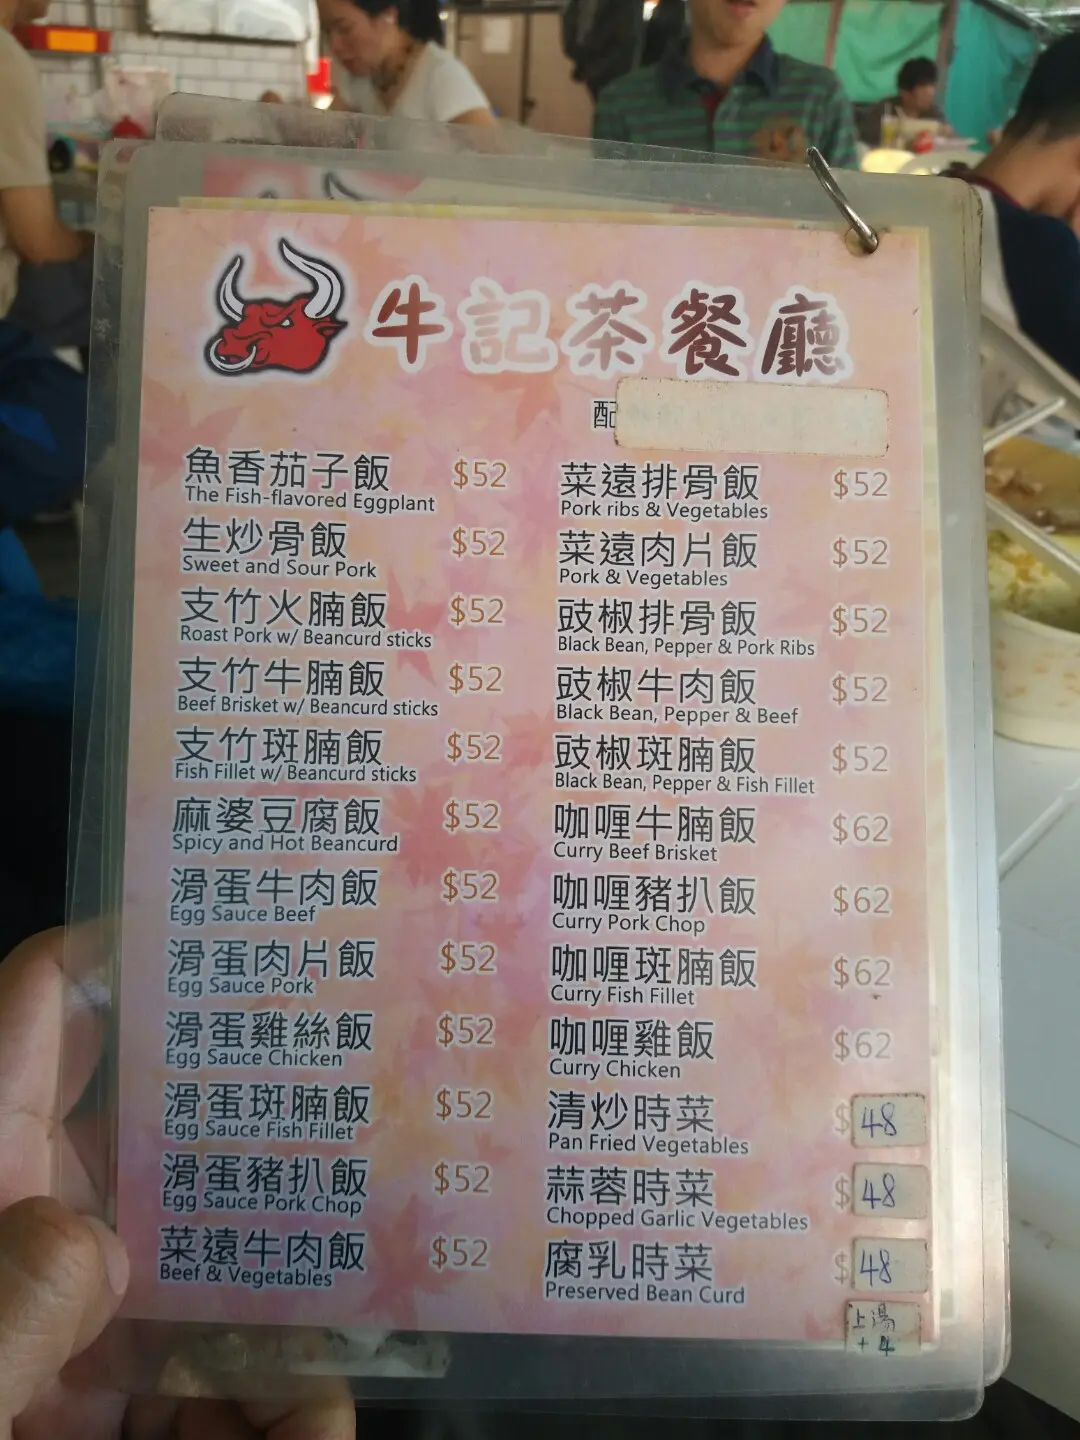 牛記茶餐廳
配
魚香茄子飯 $52
The Fish-flavored Eggplant
生炒骨飯 $52
Sweet and Sour Pork
支竹火腩飯 $52
Roast Pork w/ Beancurd sticks
支竹牛腩飯 $52
Beef Brisket w/ Beancurd sticks
支竹斑腩飯 $52
Fish Fillet w/ Beancurd sticks
麻婆豆腐飯 $52
Spicy and Hot Beancurd
滑蛋牛肉飯 $52
Egg Sauce Beef
滑蛋肉片飯 $52
Egg Sauce Pork
滑蛋雞絲飯 $52
Egg Sauce Chicken
滑蛋斑腩飯 $52
Egg Sauce Fish Fillet
滑蛋豬扒飯 $52
Egg Sauce Pork Chop
菜遠牛肉飯 $52
Beef & Vegetables
菜遠排骨飯 $52
Pork ribs & Vegetables
菜遠肉片飯 $52
Pork & Vegetables
豉椒排骨飯 $52
Black Bean, Pepper & Pork Ribs
豉椒牛肉飯 $52
Black Bean, Pepper & Beef
豉椒斑腩飯 $52
Black Bean, Pepper & Fish Fillet
咖喱牛腩飯 $62
Curry Beef Brisket
咖喱豬扒飯 $62
Curry Pork Chop
咖喱斑腩飯 $62
Curry Fish Fillet
咖喱雞飯 $62
Curry Chicken
清炒時菜 $48
Pan Fried Vegetables
蒜蓉時菜 $48
Chopped Garlic Vegetables
腐乳時菜 $48
Preserved Bean Curd
上湯
+4